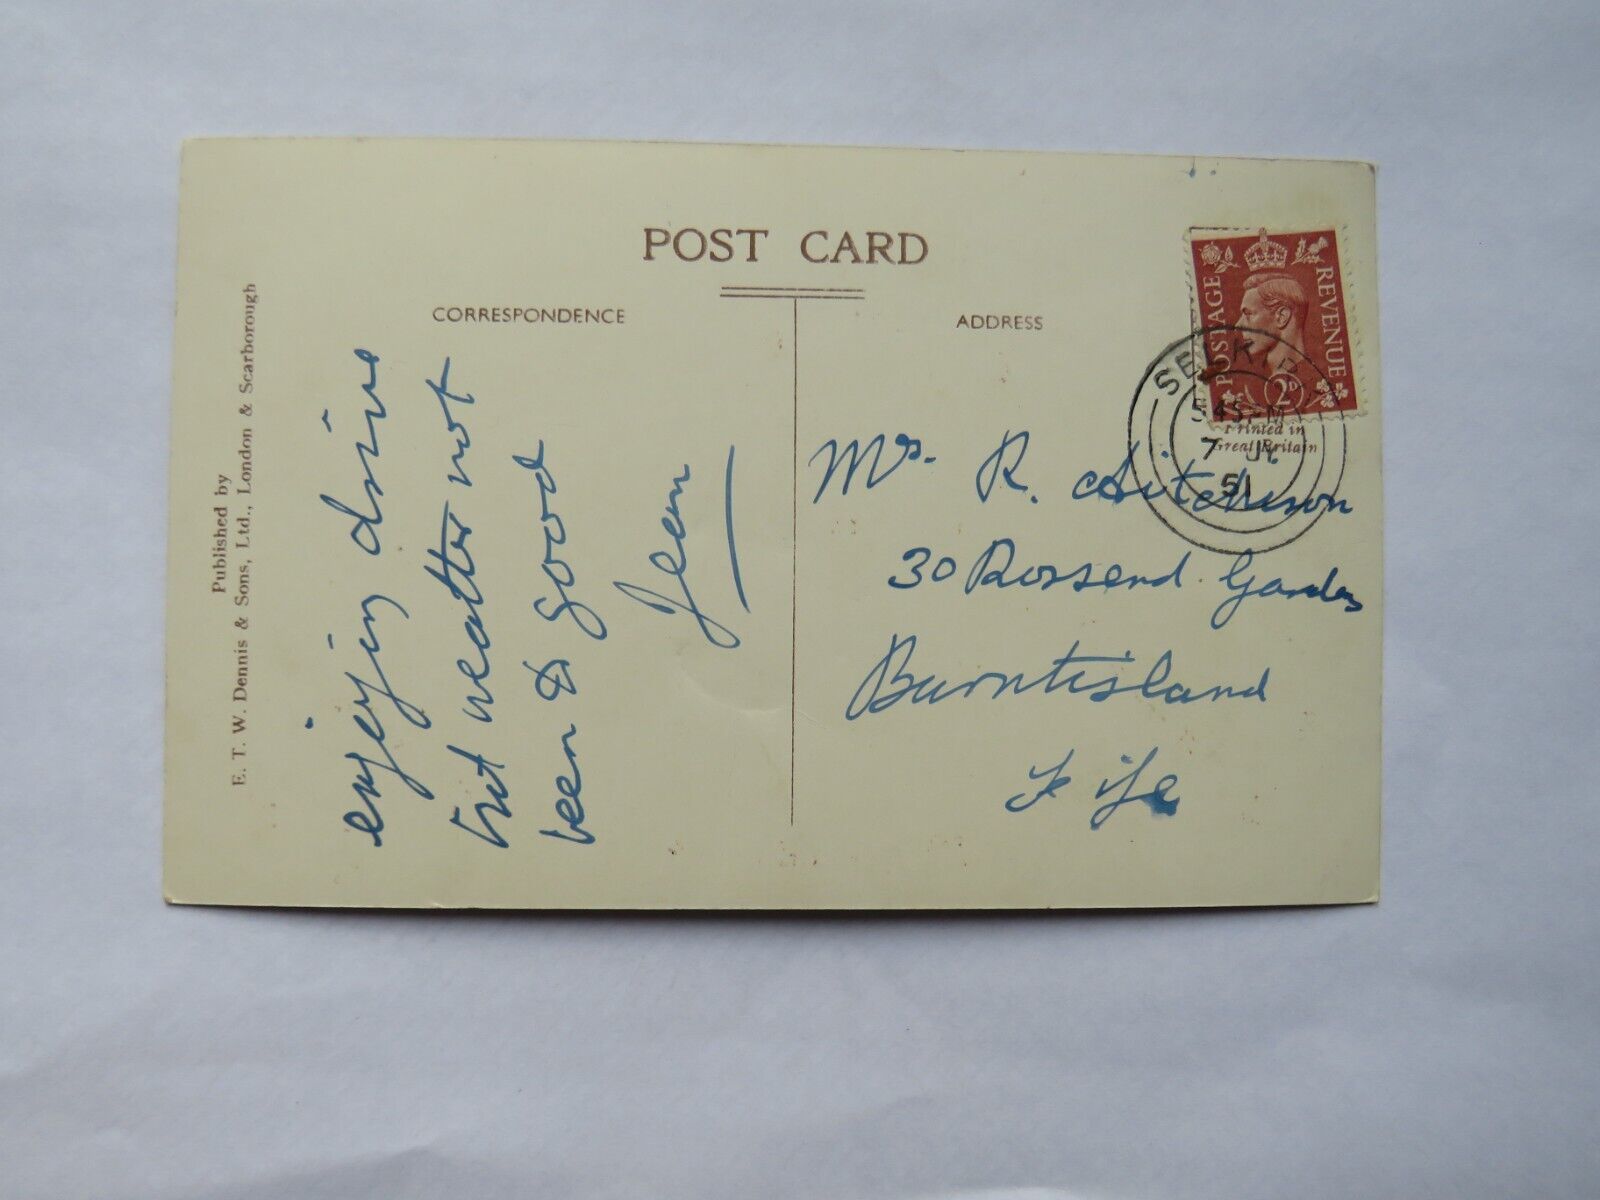 POST CARD
CORRESPONDENCE
ADDRESS
Published by
E. T. W. Dennis & Sons, Ltd., London & Scarborough
enjoying drive
but weather not
been so good
Jean
POSTAGE
REVENUE
2D
SELKIRK
5 45 PM
7 JY
51
Printed in
Great Britain
Mrs. R. Aitchison
30 Rossend Gardens
Burntisland
Fife